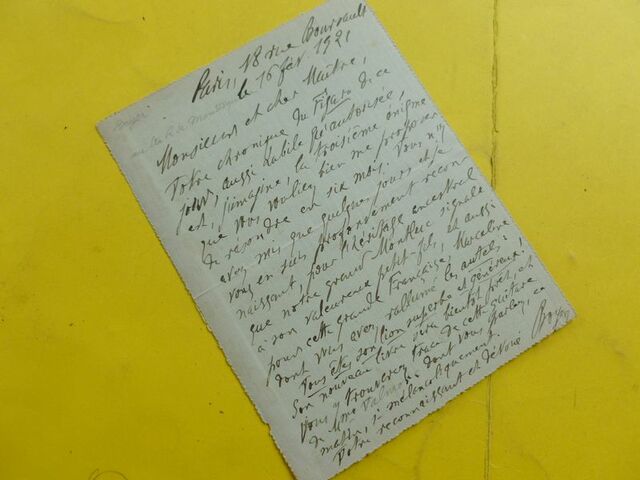 Paris, 18 rue Boursault
le 16 fév. 1921
Monsieur et cher Maître,
Votre chronique du Figaro de ce
jour, aussi habile qu'autorisée,
est, j'imagine, la troisième énigme
que vous vouliez bien me proposer
de résoudre en six mois. Vous n'y
avez mis que quelques jours et je
vous en suis profondément recon
naissant, pour l'héritage ancestral
que notre grand Montluc signale
à son valeureux petit-fils, et aussi
pour cette grande Française, Marceline
dont vous avez rallumé les autels:
Tous étes son lion superbe et généreux!
Son nouveau livre sera bientôt prêt, et
vous y trouverez trace de cette guitare
de Mme Valmore dont vous parlez, ce
matin, si mélancoliquement.
Votre reconnaissant et dévoué
Boyer